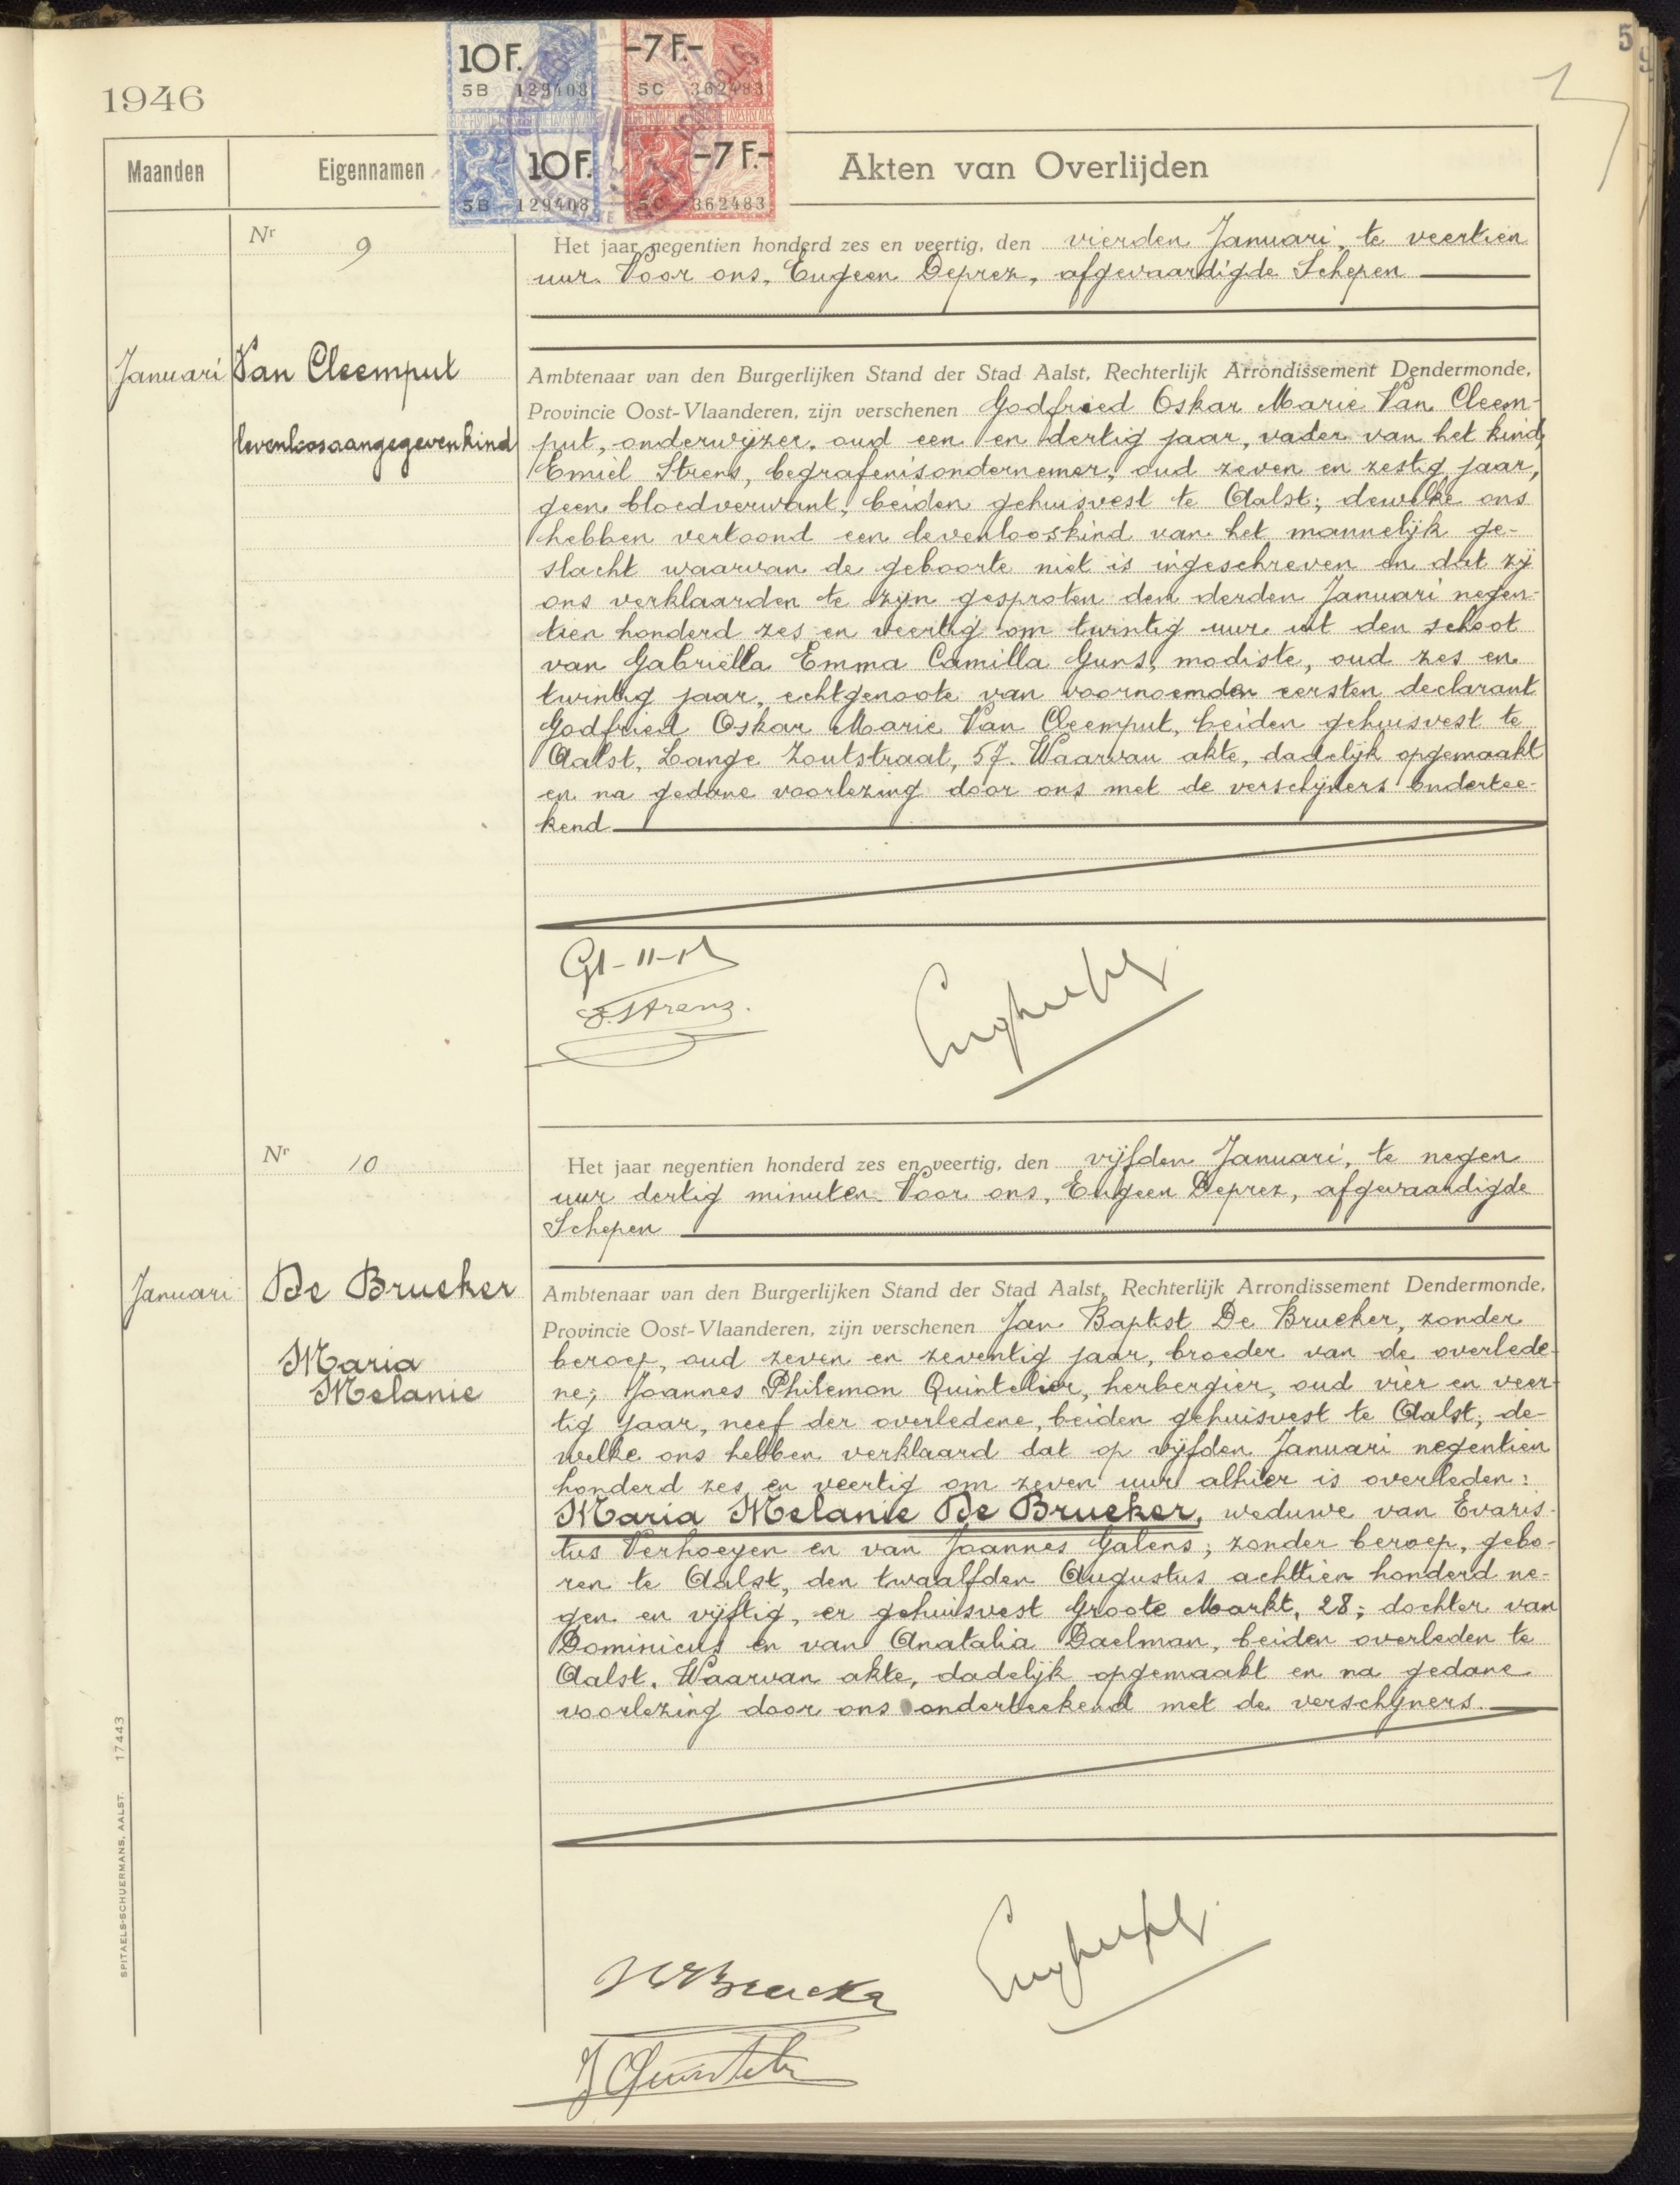 5
1946
10F. -7 F.-
5B 129408 5C 362483
10F. -7 F.-
5B 129408 5C 362483
Maanden Eigennamen Akten van Overlijden
Nr 9
Het jaar negentien honderd zes en veertig, den vierden Januari, te veertien
uur. Voor ons, Eugeen Deprez, afgevaardigde Schepen
Januari Van Cleemput
levenloosaangegevenkind
Ambtenaar van den Burgerlijken Stand der Stad Aalst, Rechterlijk Arrondissement Dendermonde,
Provincie Oost-Vlaanderen, zijn verschenen Godfried Oskar Marie Van Cleem-
put, onderwijzer, oud een en dertig jaar, vader van het kind,
Emiel Strens, begrafenisondernemer, oud zeven en zestig jaar,
geen bloedverwant, beiden gehuisvest te Aalst; dewelke ons
hebben vertoond een levenlooskind van het mannelijk ge-
slacht waarvan de geboorte niet is ingeschreven en dat zij
ons verklaarden te zijn gesproten den derden Januari negen-
tien honderd zes en veertig om twintig uur uit den schoot
van Gabriëlla Emma Camilla Guns, modiste, oud zes en
twintig jaar, echtgenoote van voornoemden eersten declarant
Godfried Oskar Marie Van Cleemput, beiden gehuisvest te
Aalst, Lange Zoutstraat, 57. Waarvan akte, dadelijk opgemaakt
en na gedane voorlezing door ons met de verschijners ondertee-
kend
E. Strens.
Nr 10
Het jaar negentien honderd zes en veertig, den vijfden Januari, te negen
uur dertig minuten. Voor ons, Eugeen Deprez, afgevaardigde
Schepen
Januari De Brucker
Maria
Melanie
Ambtenaar van den Burgerlijken Stand der Stad Aalst, Rechterlijk Arrondissement Dendermonde,
Provincie Oost-Vlaanderen, zijn verschenen Jan Baptist De Brucker, zonder
beroep, oud zeven en zeventig jaar, broeder van de overlede-
ne; Joannes Philemon Quintelier, herbergier, oud vier en veer-
tig jaar, neef der overledene, beiden gehuisvest te Aalst; de-
welke ons hebben verklaard dat op vijfden Januari negentien
honderd zes en veertig om zeven uur alhier is overleden:
Maria Melanie De Brucker, weduwe van Evaris-
tus Verhoeyen en van Joannes Galens; zonder beroep, gebo-
ren te Aalst, den twaalfden Augustus achttien honderd ne-
gen en vijftig, er gehuisvest Groote Markt, 28; dochter van
Dominicus en van Anatalia Daelman, beiden overleden te
Aalst. Waarvan akte, dadelijk opgemaakt en na gedane
voorlezing door ons onderteekend met de verschijners.
SPITAELS-SCHUERMANS, AALST. 17443